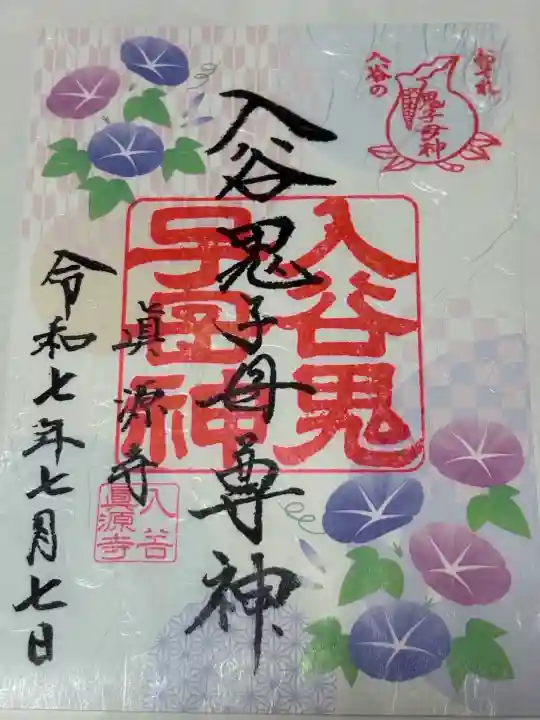 おそれ
入谷の
鬼子母神
入谷鬼子母尊神
入谷鬼
子母神
眞源寺
入谷
眞源寺
令和七年七月七日